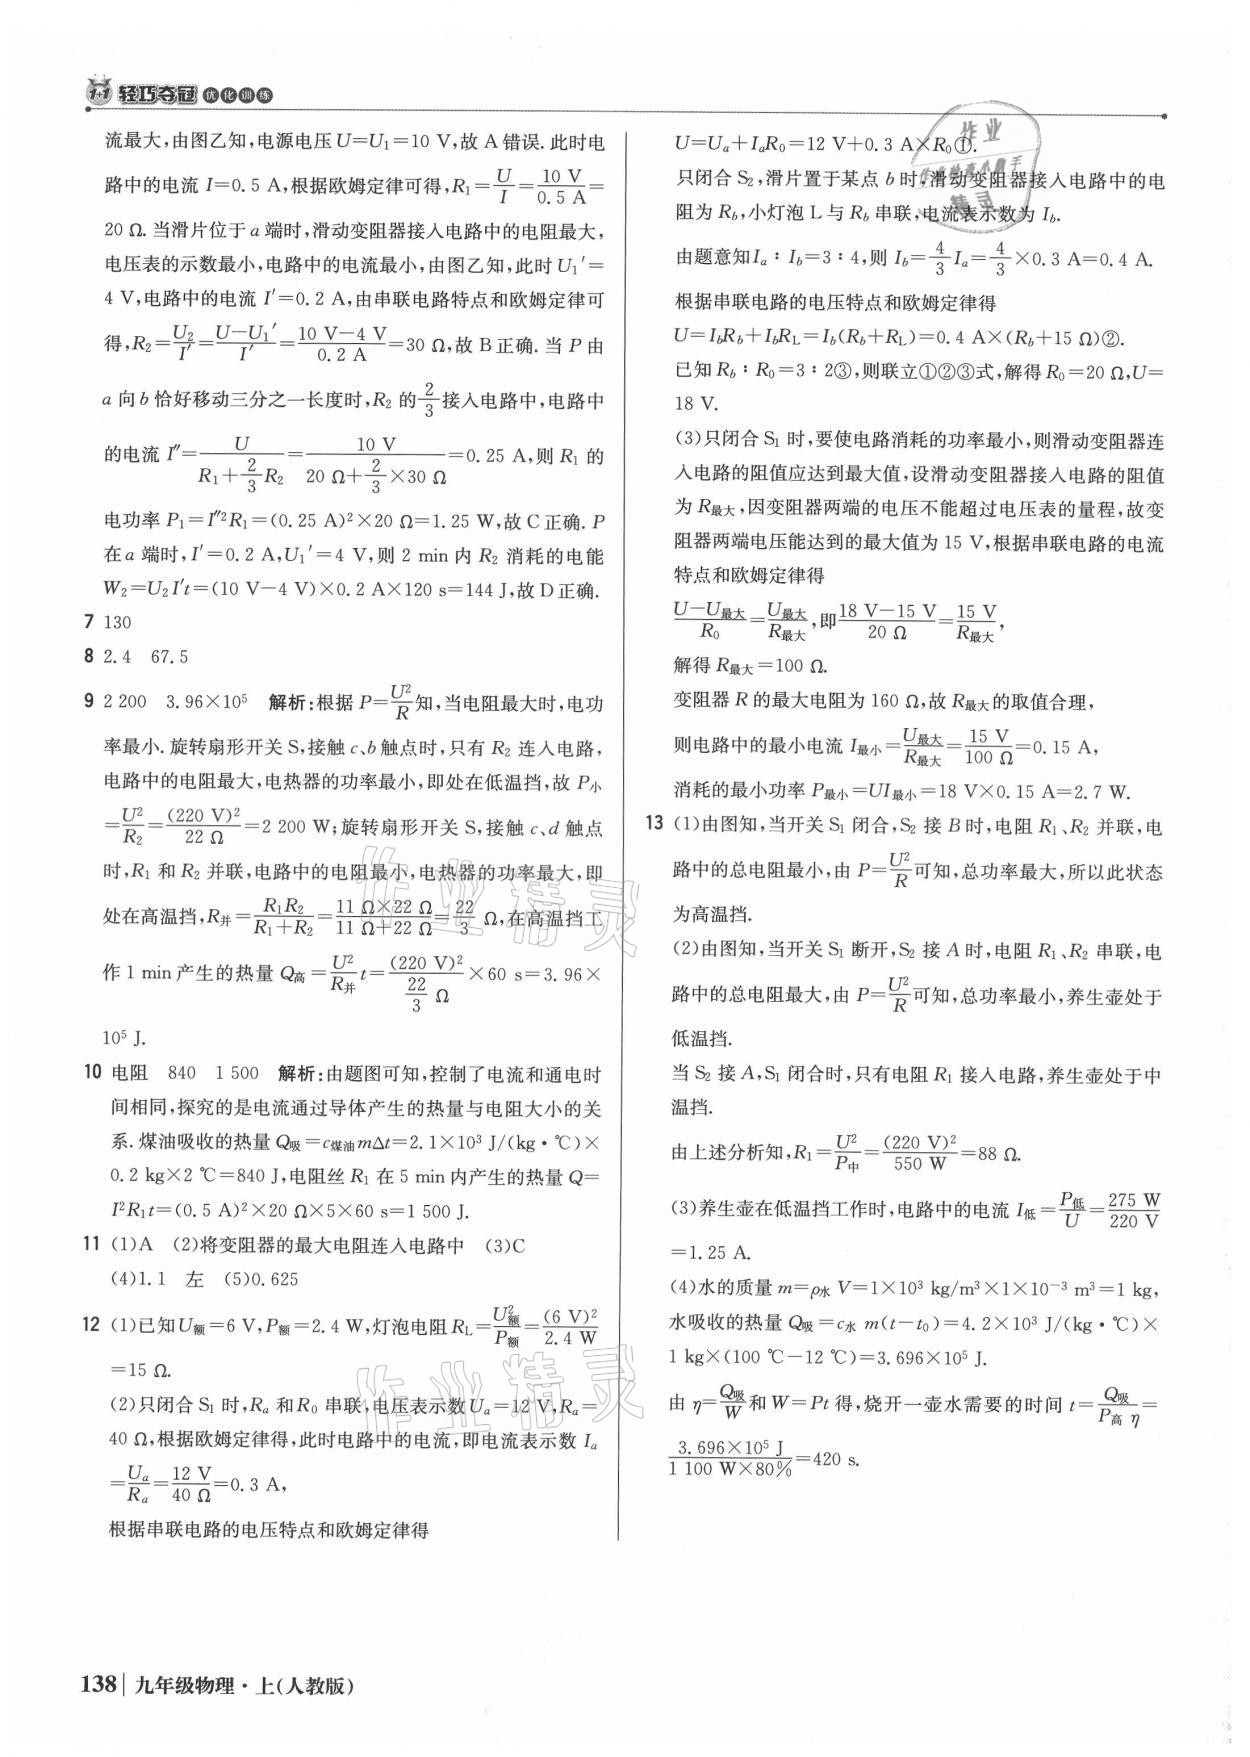 1+1 轻巧夺冠 优化训练
流最大,由图乙知,电源电压U=U₁=10 V,故A错误.此时电
路中的电流 I=0.5 A,根据欧姆定律可得,R₁=U/I=10 V/0.5 A=
20 Ω.当滑片位于a端时,滑动变阻器接入电路中的电阻最大,
电压表的示数最小,电路中的电流最小,由图乙知,此时U₁′=
4 V,电路中的电流 I′=0.2 A,由串联电路特点和欧姆定律可
得,R₂=U₂/I′=(U−U₁′)/I′=(10 V−4 V)/0.2 A=30 Ω,故B正确.当P由
a向b恰好移动三分之一长度时,R₂的2/3接入电路中,电路中
的电流 I″=U/(R₁+2/3 R₂)=10 V/(20 Ω+2/3×30 Ω)=0.25 A,则R₁的
电功率P₁=I″²R₁=(0.25 A)²×20 Ω=1.25 W,故C正确.P
在a端时,I′=0.2 A,U₁′=4 V,则2 min内R₂消耗的电能
W₂=U₂I′t=(10 V−4 V)×0.2 A×120 s=144 J,故D正确.
7 130
8 2.4 67.5
9 2 200 3.96×10⁵ 解析:根据P=U²/R知,当电阻最大时,电功
率最小.旋转扇形开关S,接触c、b触点时,只有R₂连入电路,
电路中的电阻最大,电热器的功率最小,即处在低温挡,故P小
=U²/R₂=(220 V)²/22 Ω=2 200 W;旋转扇形开关S,接触c、d触点
时,R₁和R₂并联,电路中的电阻最小,电热器的功率最大,即
处在高温挡,R并=R₁R₂/(R₁+R₂)=(11 Ω×22 Ω)/(11 Ω+22 Ω)=22/3 Ω,在高温挡工
作1 min产生的热量Q高=U²/R并 t=(220 V)²/(22/3 Ω)×60 s=3.96×
10⁵ J.
10 电阻 840 1 500 解析:由题图可知,控制了电流和通电时
间相同,探究的是电流通过导体产生的热量与电阻大小的关
系.煤油吸收的热量Q吸=c煤油mΔt=2.1×10³ J/(kg·℃)×
0.2 kg×2 ℃=840 J,电阻丝R₁在5 min内产生的热量Q=
I²R₁t=(0.5 A)²×20 Ω×5×60 s=1 500 J.
11 (1)A (2)将变阻器的最大电阻连入电路中 (3)C
(4)1.1 左 (5)0.625
12 (1)已知U额=6 V,P额=2.4 W,灯泡电阻R_L=U额²/P额=(6 V)²/2.4 W
=15 Ω.
(2)只闭合S₁时,Rₐ和R₀串联,电压表示数Uₐ=12 V,Rₐ=
40 Ω,根据欧姆定律得,此时电路中的电流,即电流表示数Iₐ
=Uₐ/Rₐ=12 V/40 Ω=0.3 A,
根据串联电路的电压特点和欧姆定律得
U=Uₐ+IₐR₀=12 V+0.3 A×R₀①.
只闭合S₂,滑片置于某点b时,滑动变阻器接入电路中的电
阻为R_b,小灯泡L与R_b串联,电流表示数为I_b.
由题意知Iₐ∶I_b=3∶4,则I_b=4/3 Iₐ=4/3×0.3 A=0.4 A.
根据串联电路的电压特点和欧姆定律得
U=I_bR_b+I_bR_L=I_b(R_b+R_L)=0.4 A×(R_b+15 Ω)②.
已知R_b∶R₀=3∶2③,则联立①②③式,解得R₀=20 Ω,U=
18 V.
(3)只闭合S₁时,要使电路消耗的功率最小,则滑动变阻器连
入电路的阻值应达到最大值,设滑动变阻器接入电路的阻值
为R最大,因变阻器两端的电压不能超过电压表的量程,故变
阻器两端电压能达到的最大值为15 V,根据串联电路的电流
特点和欧姆定律得
(U−U最大)/R₀=U最大/R最大,即(18 V−15 V)/20 Ω=15 V/R最大,
解得R最大=100 Ω.
变阻器R的最大电阻为160 Ω,故R最大的取值合理,
则电路中的最小电流I最小=U最大/R最大=15 V/100 Ω=0.15 A,
消耗的最小功率P最小=UI最小=18 V×0.15 A=2.7 W.
13 (1)由图知,当开关S₁闭合,S₂接B时,电阻R₁、R₂并联,电
路中的总电阻最小,由P=U²/R可知,总功率最大,所以此状态
为高温挡.
(2)由图知,当开关S₁断开,S₂接A时,电阻R₁、R₂串联,电
路中的总电阻最大,由P=U²/R可知,总功率最小,养生壶处于
低温挡.
当S₂接A,S₁闭合时,只有电阻R₁接入电路,养生壶处于中
温挡.
由上述分析知,R₁=U²/P中=(220 V)²/550 W=88 Ω.
(3)养生壶在低温挡工作时,电路中的电流I低=P低/U=275 W/220 V
=1.25 A.
(4)水的质量m=ρ水V=1×10³ kg/m³×1×10⁻³ m³=1 kg,
水吸收的热量Q吸=c水m(t−t₀)=4.2×10³ J/(kg·℃)×
1 kg×(100 ℃−12 ℃)=3.696×10⁵ J.
由η=Q吸/W和W=Pt得,烧开一壶水需要的时间t=Q吸/(P高η)=
3.696×10⁵ J/(1 100 W×80%)=420 s.
作业精灵
作业精灵
138 九年级物理·上(人教版)